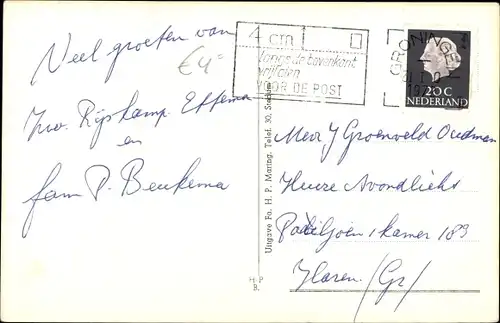 Veel groeten van
Fam P. Beukema
en
€4=
4 cm
langs de bovenkant
vrijlaten
VOOR DE POST
GRONINGEN
20C
NEDERLAND
Uitgave Fa. H. P. Maring. Telef. 30,
H P
B.
Mevr J Groeneveld Oudman
Huize Avondlicht
Paviljoen 1 kamer 109
Haren (Gr)